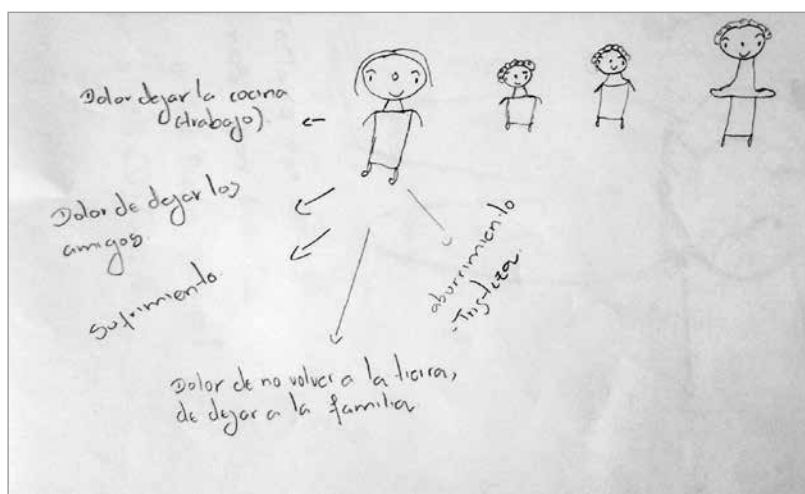 Dolor dejar la cocina
(trabajo)
Dolor de dejar los
amigos.
sufrimiento.
aburrimiento
-Tristeza.
Dolor de no volver a la tierra,
de dejar a la familia